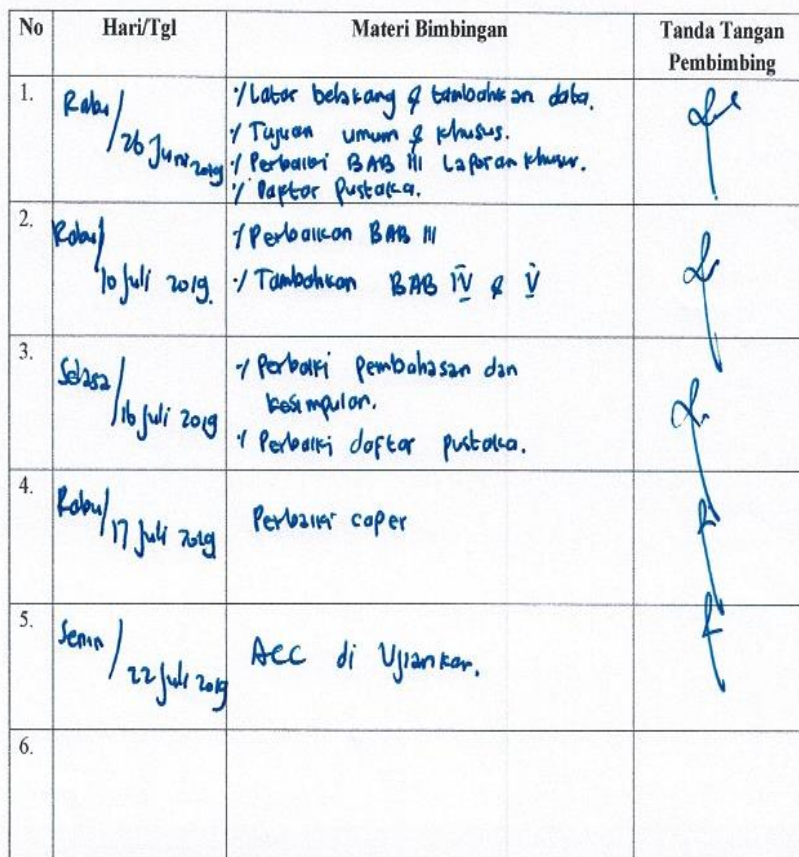 No Hari/Tgl Materi Bimbingan Tanda Tangan
Pembimbing
1. Rabu/ 26 Juni 2019
·/ Latar belakang & tambahkan data.
·/ Tujuan umum & khusus.
·/ Perbaiki BAB III Laporan khusus.
·/ Daftar Pustaka.
2. Rabu/ 10 Juli 2019.
·/ Perbaikan BAB III
·/ Tambahkan BAB IV & V
3. Selasa/ 16 Juli 2019
·/ Perbaiki pembahasan dan
kesimpulan.
·/ Perbaiki daftar pustaka.
4. Rabu/ 17 Juli 2019
Perbaiki coper
5. Senin/ 22 Juli 2019
ACC di Ujiankan.
6.